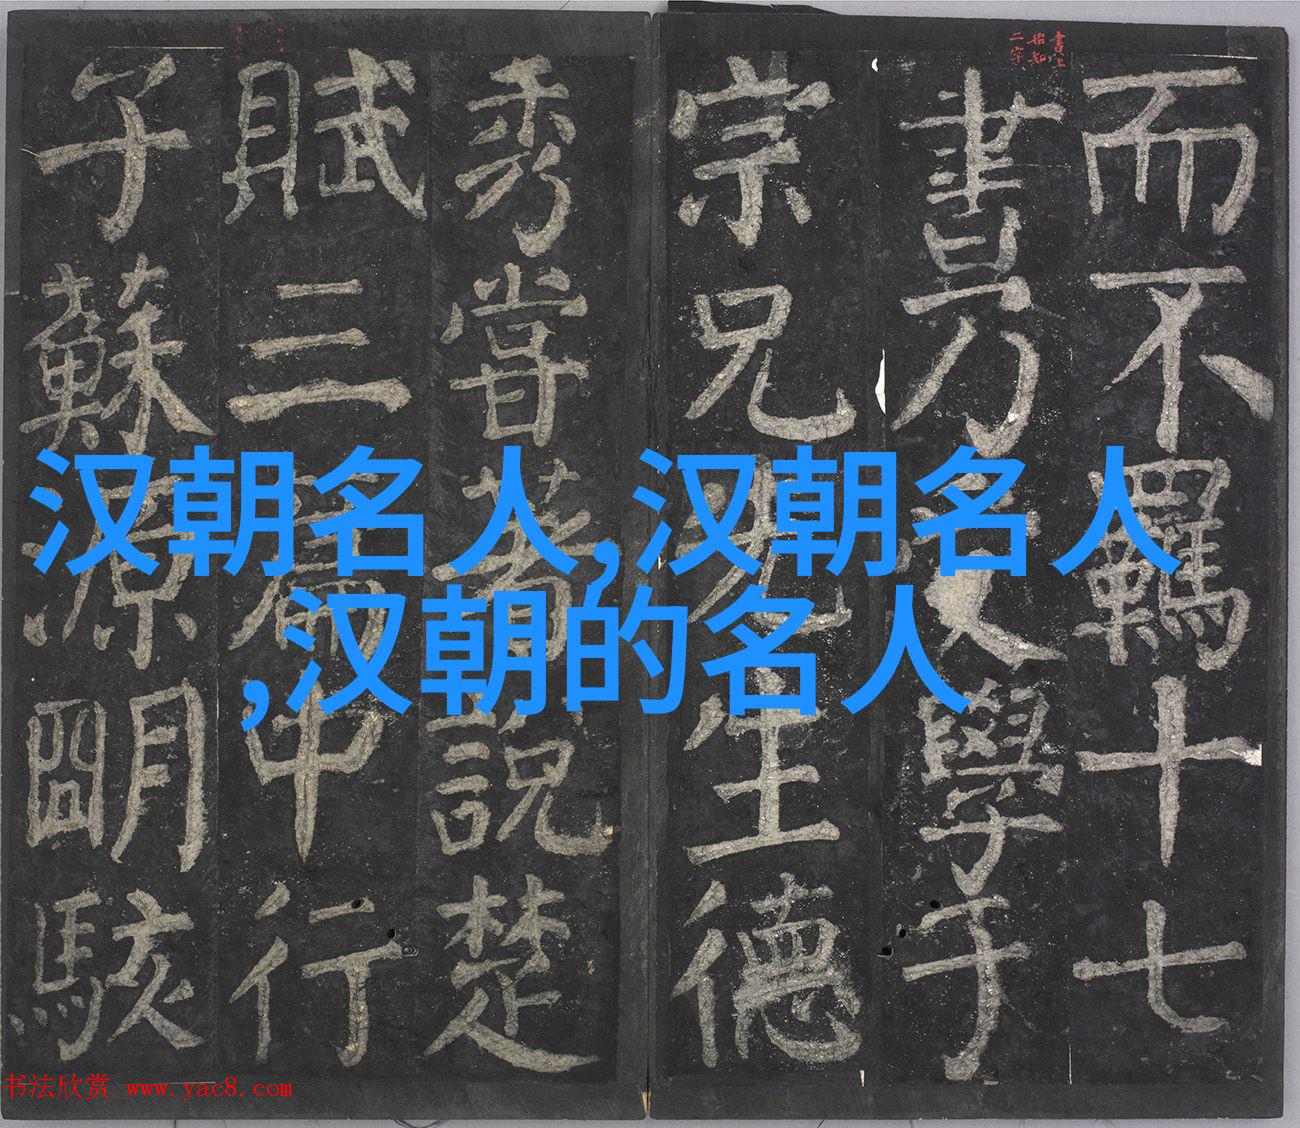 而不羈十七
書乃文學于
宗兄先生德
秀嘗著說楚
賦三篇中行
子蘇源明駭
汉朝名人,汉朝名人
,汉朝的名人
书法欣赏 www.yac8.com